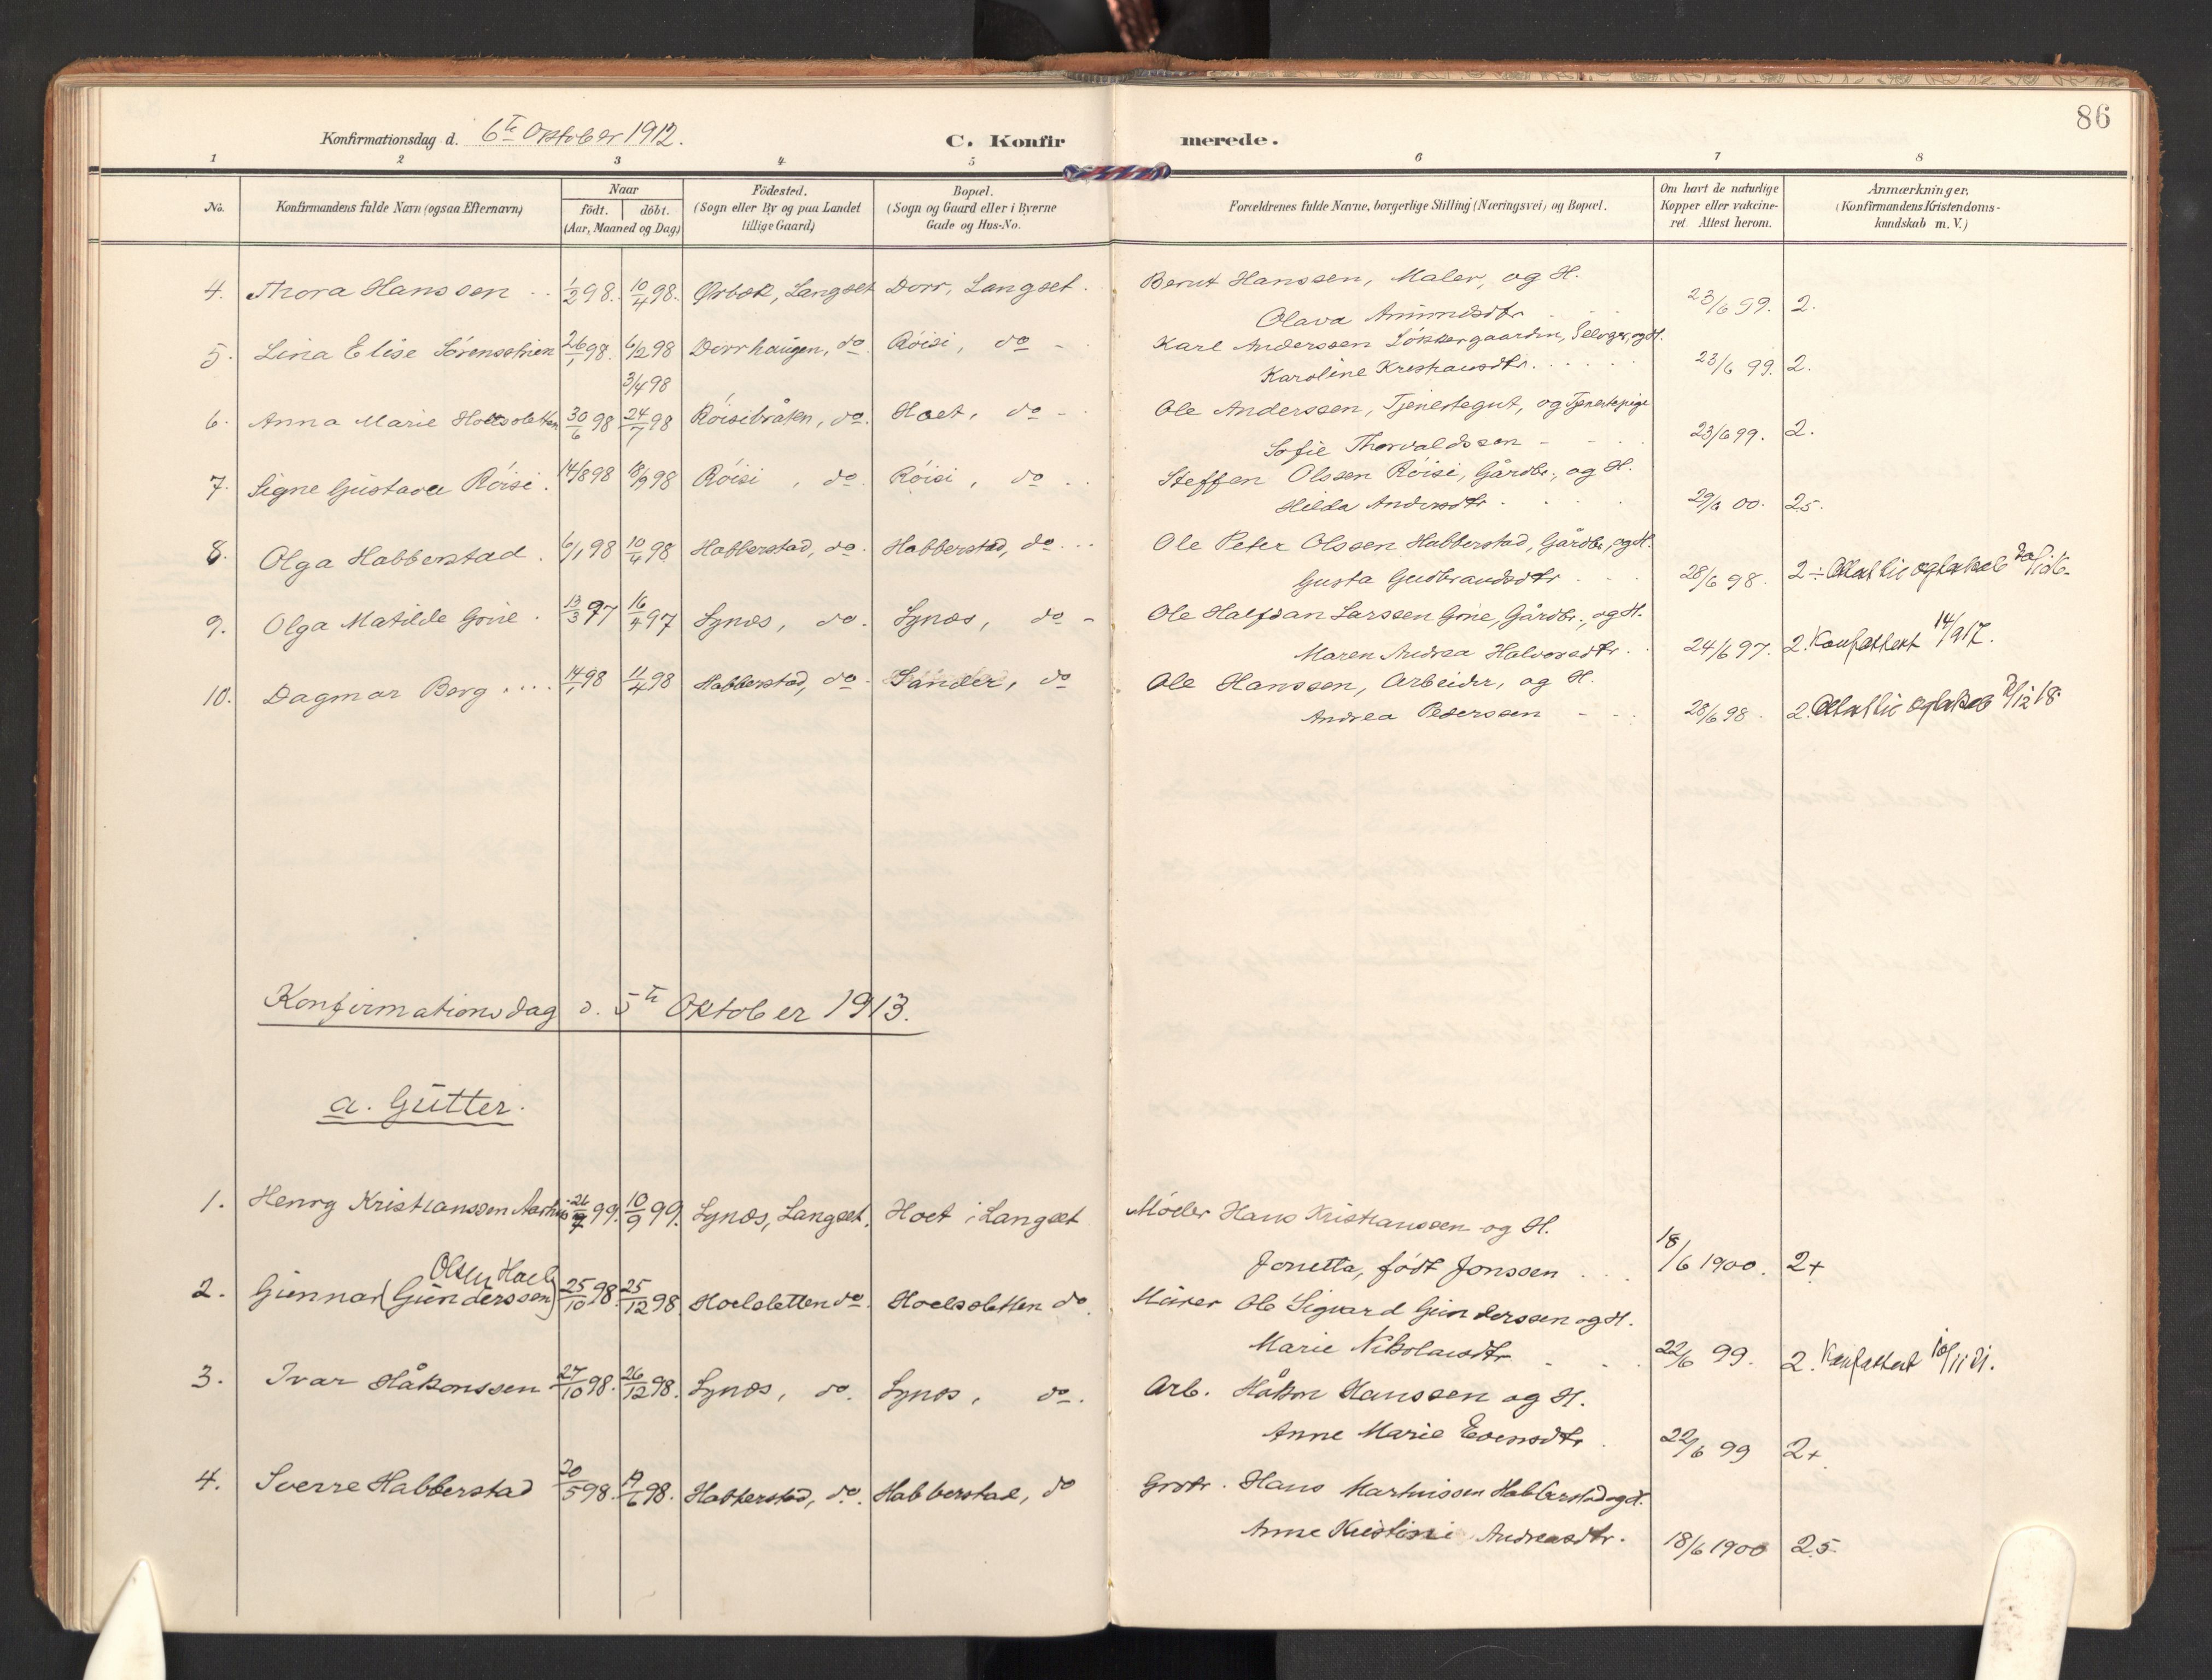 86
Konfirmationsdag d. 6te Oktober 1912.
C. Konfirmerede.
1 2 3 4 5 6 7 8
No.
Konfirmandens fulde Navn (ogsaa Efternavn)
Naar
født. | døbt.
(Aar, Maaned og Dag)
Födested.
(Sogn eller By og paa Landet
tillige Gaard)
Bopæl.
(Sogn og Gaard eller i Byerne
Gade og Hus-No.
Forældrenes fulde Navne, borgerlige Stilling (Næringsvei) og Bopæl.
Om havt de naturlige
Kopper eller vakcine-
ret. Attest herom.
Anmærkninger.
(Konfirmandens Kristendoms-
kundskab m. V.)
4. Thora Hanssen .. 1/2 98. 10/4 98. Ørbæk, Langset Dorr, Langset. Bernt Hanssen, Maler, og H.
Olava Amundsdtr 23/6 99. 2.
5. Lina Elise Sørensstuen 26/1 98. 6/2 98 Dorrhaugen, do. Røisi, do - Karl Anderssen Løkkergaarden, Selveger, og H.
3/4 98 Karoline Kristiansdtr. 23/6 99. 2.
6. Anna Marie Hoelssletten 30/6 98 24/7 98 Røisibråten, do. Hoet, do - Ole Anderssen, Tjenestegut, og Tjenestepige
Sofie Thorvaldssen - 23/6 99. 2.
7. Signe Gustava Røisi. 14/8 98 18/9 98 Røisi, do. Røisi, do .. Steffen Olssen Røisi, Gårdbr., og H.
Hilda Andersdtr. 29/6 00. 2.5.
8. Olga Habberstad. 6/1 98 10/4 98 Habberstad, do. Habberstad, do... Ole Peter Olssen Habberstad, Gårdbr., og H.
Gusta Gudbrandsdtr 28/6 98. 2÷
9. Olga Matilde Grine. 13/3 97 16/4 97 Synes, do. Synes, do - Ole Halfdan Larssen Grine, Gårdbr., og H.
Maren Andrea Halvorsdtr. 24/6 97. 2. Konfattest 14/9 17.
10. Dagmar Berg .... 14/1 98 11/4 98 Habberstad, do. Sander, do Ole Hanssen, Arbeider, og H.
Andrea Pederssen - 28/6 98. 2.
Konfirmationsdag d. 5te Oktober 1913.
a. Gutter.
1. Henry Kristianssen 99. 10/9 99. Synes, Langset. Hoet i Langset Møller Hans Kristianssen og H.
Jonetta, født Jonssen .. 18/6 1900. 2+
Olsen Hoel
2. Gunnar (Gunderssen) 25/10 98. 25/12 98. Hoelsletten do. Hoelssletten do. Murer Ole Sigvard Gunderssen og H.
Marie Nikolaisdtr 22/6 99. 2. Konfattest
3. Ivar Håkonssen 27/10 98. 26/12 98. Synes, do. Synes, do. Arb. Håkon Hanssen og H.
Anne Marie Evensdtr. 22/6 99 2+
4. Sverre Habberstad 20/5 98. 98. Habberstad, do. Habberstad, do Grdbr. Hans Martinssen Habberstad og H.
Anne Kristine Andreasdtr. 18/6 1900 2.5